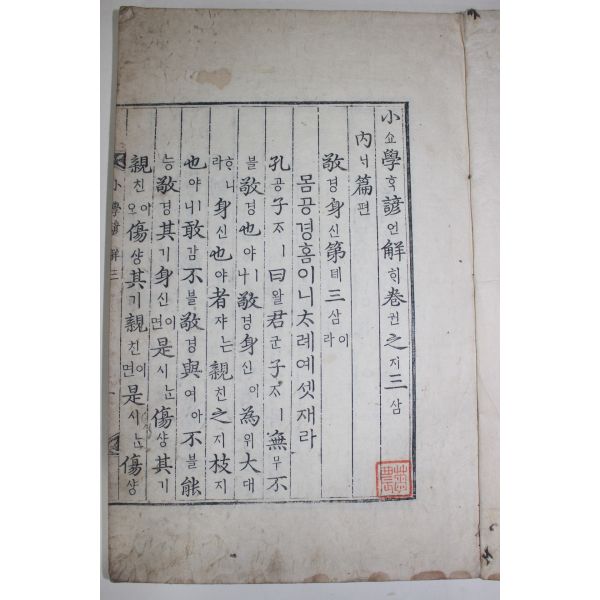 小쇼學ᄒᆞᆨ諺언解ᄒᆡ卷권之지三삼
內ᄂᆡ篇편
敬경身신第뎨三삼이라
몸공경홈이니ᄎᆞ례예셋재라
孔공子ᄌᆞㅣ曰왈君군子ᄌᆞㅣ無무不
블敬경也야ㅣ나敬경身신이為위大대
ᄒᆞ니라身신也야者쟈ᄂᆞᆫ親친之지枝지
也야ㅣ니敢감不블敬경與여아不블能
능敬경其기身신이면是시ᄂᆞᆫ傷샹其기
親친이오傷샹其기親친이면是시ᄂᆞᆫ傷샹
小學諺解三